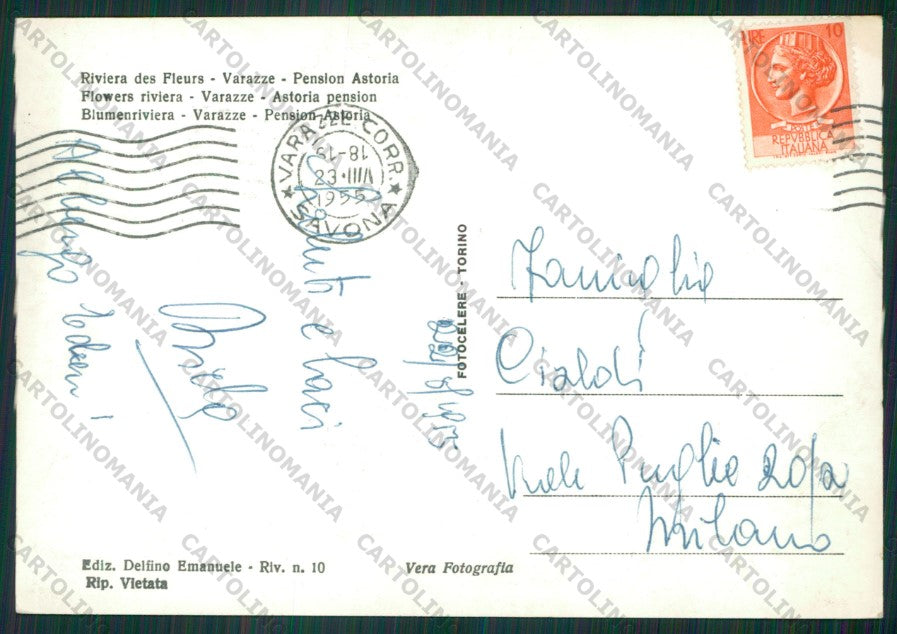 Riviera des Fleurs - Varazze - Pension Astoria
Flowers riviera - Varazze - Astoria pension
Blumenriviera - Varazze - Pension Astoria
LIRE 10
POSTE
REPVBBLICA
ITALIANA
VARAZZE CORR.
18-19
23·VIII
1955
SAVONA
e baci
FOTOCELERE - TORINO
Famiglia
Cialdi
Viale Puglie 20/a
Milano
Ediz. Delfino Emanuele - Riv. n. 10
Rip. Vietata
Vera Fotografia
CARTOLINOMANIA